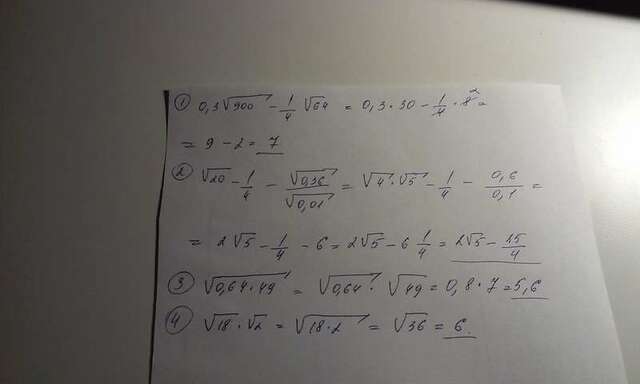 ① 0,3√900 - 1/4 √64 = 0,3·30 - 1/4 · 8² =
= 9 - 2 = 7
② √20 - 1/4 - √0,36/√0,01 = √4·√5 - 1/4 - 0,6/0,1 =
= 2√5 - 1/4 - 6 = 2√5 - 6 1/4 = 2√5 - 25/4
③ √0,64·49 = √0,64 · √49 = 0,8·7 = 5,6
④ √18·√2 = √18·2 = √36 = 6.